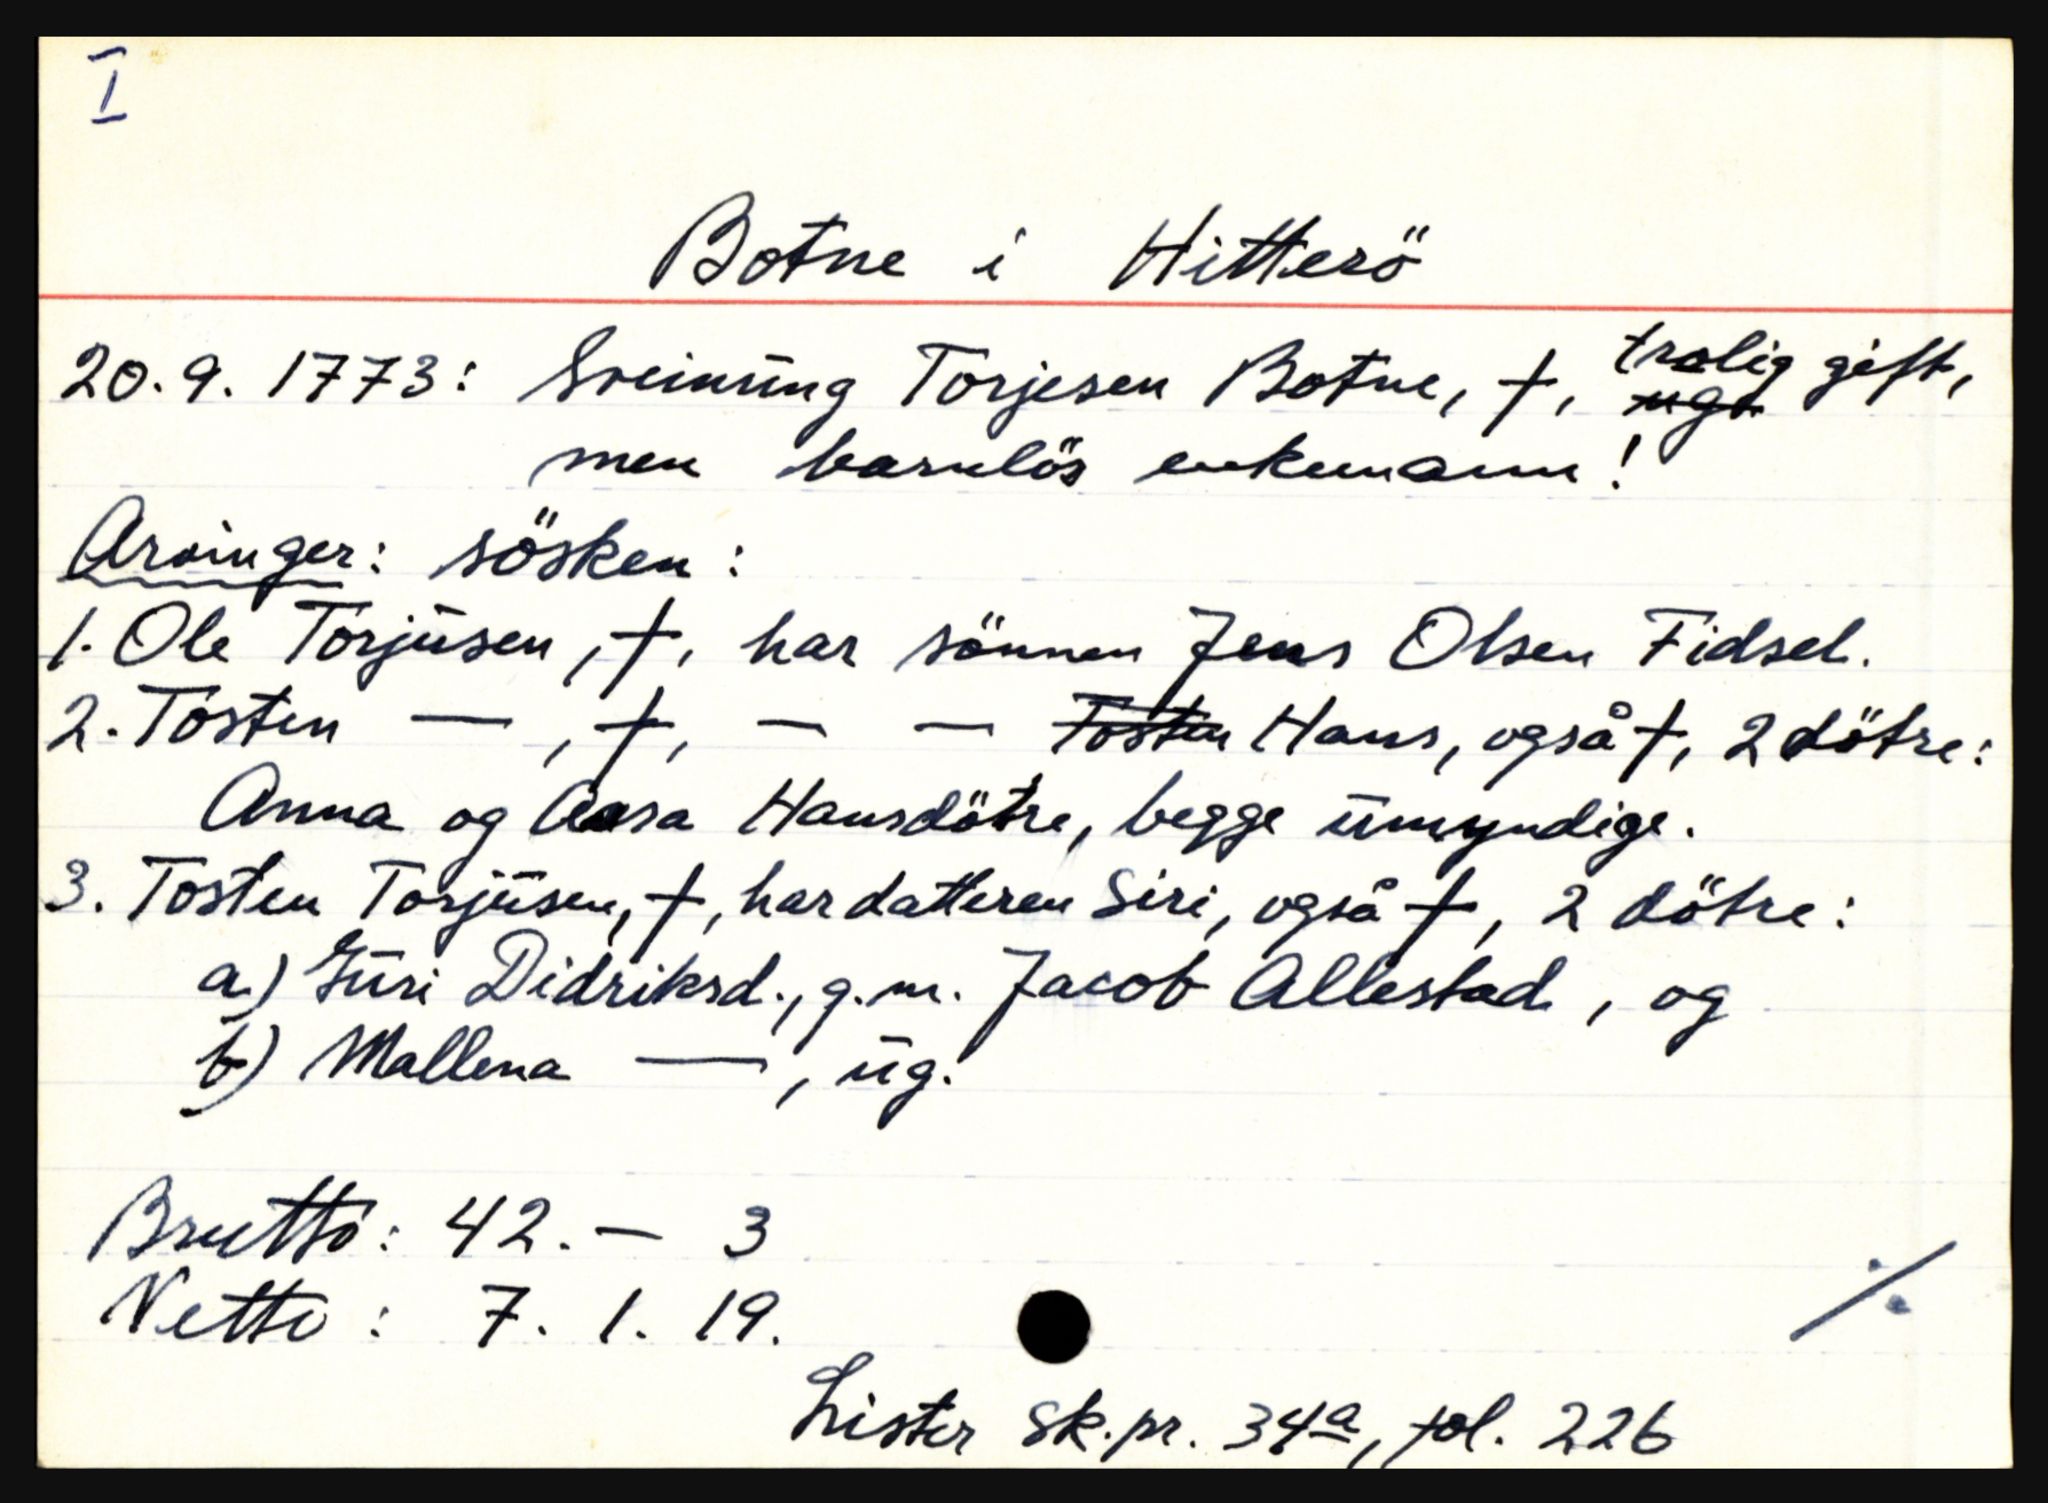 I
Botne i Hitterö
20.9. 1773: Sveinung Torjesen Botne, †, trolig gift,
ug.
men barnlös enkemann!
Arvinger: sösken:
1. Ole Torjusen, †, har sönnen Jens Olsen Fidsel.
2. Tosten —, †, — — Tosten Hans, også †, 2 dötre:
Anna og Aasa Hansdötre, begge umyndige.
3. Tosten Torjusen, †, har datteren Siri, også †, 2 dötre:
a) Guri Didriksd., g.m. Jacob Allestad, og
b) Mallena —, ug.
Brutto: 42. — 3
Netto: 7. 1. 19.
./.
Lister sk.pr. 34a, fol. 226